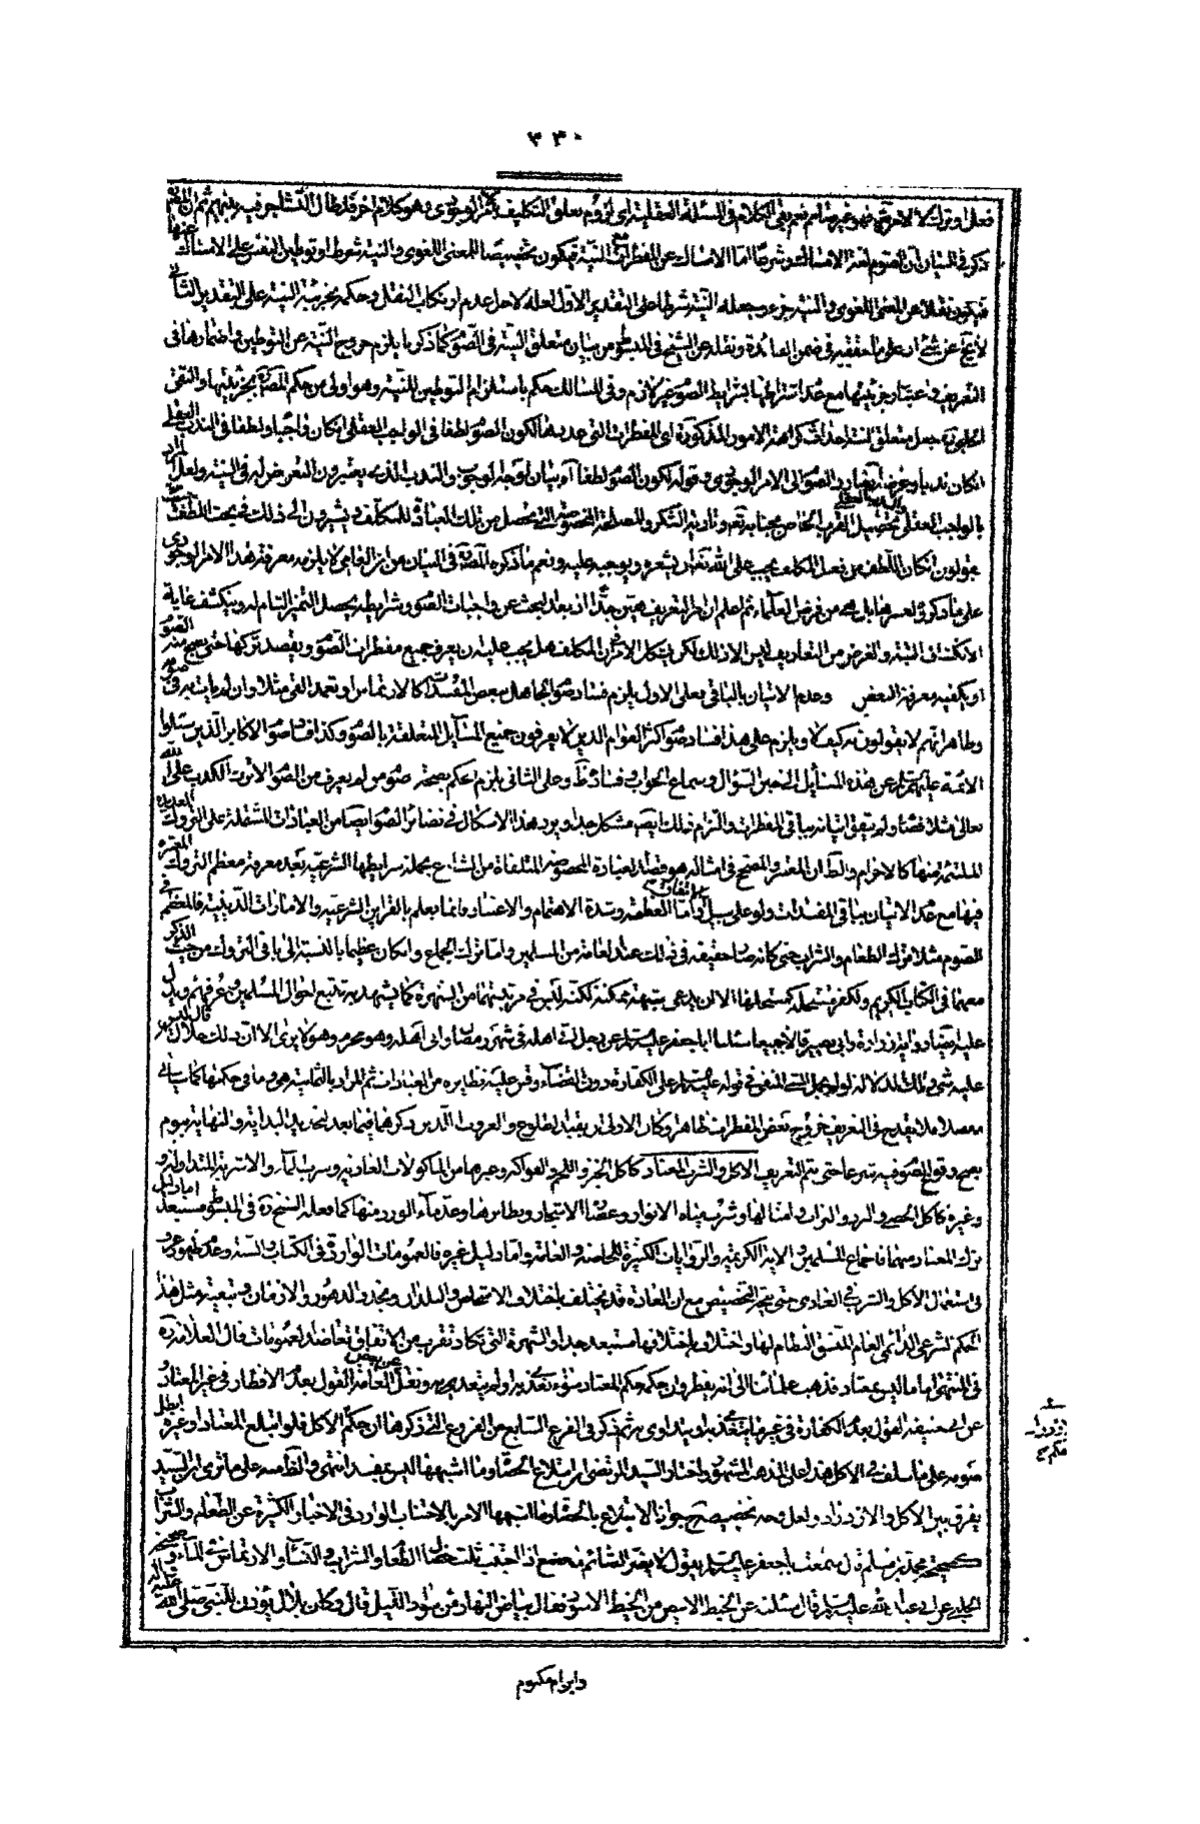 ٣٣٠
فعل او ترك كلا لا يخفى نعم بقى الكلام فى المسئلة العقلية اى لزوم تعلق التكليف بالامر الوجودى وهو كلام اخر قد طال التشاجر فيه بينهم ثم ان
ذكر فى البيان ان الصوم لغة الامساك وشرعا اما الامساك عن المفطرات مع النية فيكون تخصيصا للمعنى اللغوى والنية شرط او توطين النفس على الامساك عنها
فيكون نقلا عن المعنى اللغوى والنية جزء وجعله النية شرطا على التقدير الاول لعله لاجل عدم ارتكاب النقل وحكمه بجزئية النية على التقدير الثانى
لا يخ عن شئ فى ضمن الفائدة ونقله عن الشيخ فى المبسوط من بيان متعلق النية فى الصوم كما ذكر يلزم خروج النية عن التوطين واضمارها فى
التعريف مع عدم اشتراطها بشرايط الصوم غير لازم وفى المسالك حكم باستلزام التوطين للنية وهو اولى من حكم المصنف بجزئيتها
جعل متعلق النية احداث كراهة الامور المذكورة اى المفطرات التى عدها لكون الصوم لطفا فى الواجب العقلى ان كان واجبا ولطفا فى المندب العقلى
ان كان ندبا وغرضه الصوم الى الامر الوجودى وقوله لكون الصوم لطفا آه بيان لوجه الوجوب والندب الذى يعتبرون التعرض له فى النية ولعل المراد
بالواجب العقلى تحصيل القرب الخاص بجنابه تعالى وتادية الشكر والمصلحة المخصوصة التى تحصل من تلك العبادة للمكلف ويشيرون الى ذلك فى بحث اللطف حيث
يقولون ان كان اللطف من فعل المكلف يجب على الله تعالى ان يشعره ويوجبه عليه ونعم ما ذكره المصنف فى البيان من ان العامى لا يلزمه معرفة هذا الامر الوجودى
على ما ذكر وتفسيرها بل هى من فرض العلماء ثم اعلم ان امر التعريف هين جدا اذ بعد البحث عن واجبات الصوم وشرايطه يحصل التميز التام له وينكشف غاية
الانكشاف البتة والغرض من التعاريف ليس الا ذلك لكن يشكل الامر فى ان المكلف هل يجب عليه ان يعرف جميع مفطرات الصوم ويقصد تركها حتى يصح منه الصوم
او يكفيه معرفة البعض وعدم الاتيان بالباقى فعلى الاول يلزم فساد صوم الجاهل ببعض المفسدات كالارتماس او تعمد القئ مثلا وان لم يات به فى صومه
وظاهر انهم لا يقولون به كيف لا ويلزم على هذا فساد صوم اكثر العوام الذين لا يعرفون جميع المسائل المتعلقة بالصوم وكذا فساد صوم الاكابر الذين سئلوا
الائمة عليهم السلام عن هذه المسائل الى حين السؤال وسماع الجواب وفساده ظ وعلى الثانى يلزم الحكم بصحة صوم من لم يعرف من الصوم الا ترك الكذب على الله
تعالى مثلا قصدا ولم يتفق اتيانه بباقى المفطرات والتزام ذلك ايضا مشكل جدا ويرد هذا الاشكال فى نضائر الصوم ايضا من العبادات المشتملة على التروك العديدة
الملتئمة منها كالاحرام والظ ان المعتبر والمصحح فى امثاله هو قصد العبادة المخصوصة المتلقاة من الشارع بجملة شرايطها الشرعية بعد معرفة معظم التروك المعتبرة
فيها مع عدم الاتيان بباقى المفسدات ولو على سبيل الاتفاق واما العظمة وشدة الاهتمام والاعتبار فانما يعلم بالقراين الشرعية والامارات الدينية فالمعظم فى
الصوم مثلا ترك الطعام والشراب حتى كانه صار حقيقة فى ذلك عند العامة من المسلمين واما ترك الجماع وان كان عظيما بالنسبة الى باقى التروك من حيث الذكر
معهما فى الكتاب الكريم وتكفير مستحله كمستحلهما الا ان يدعى شبهة ممكنة لكنه ليس فى مرتبتهما من الشهرة كما يشهد به تتبع احوال المسلمين وعرفهم ويدل
عليه ايضا رواية زرارة وابى بصير قالا جميعا سئلنا ابا جعفر عليه السلام عن رجل اتى اهله فى شهر رمضان او اتى اهله وهو محرم وهو لا يرى الا ان ذلك حلال له قال ليس
عليه شئ وذلك لدلالة لو لم يحمل الشئ المنفى فى قوله عليه السلام على الكفارة دون القضاء وقس عليه نظايره من العبادات ثم المراد بالثمانية هى وما فى حكمها كما سياتى
مفصلا فلا يقدح فى التعريف خروج بعض المفطرات ظاهرا وكان الاولى ان يقيد الطلوع والغروب الذين ذكرهما فيما بعد لتحديد البداية والنهاية بيوم
يصح وقوع الصوم فيه شرعا حتى يتم التعريف الاكل والشرب المعتاد كاكل الخبز واللحم والفواكه وغيرها من الماكولات العادية وشرب الماء والاشربة المتداولة
وغيره كاكل الحصى والبرد والتراب وامثالها وشرب مياه الانوار وعصارة الاشجار ونظائرها وعد ماء الورد منها كما فعله الشيخ ره فى المبسوط مستبعد اما دليل
ترك المعتاد منهما فاجماع المسلمين والاية الكريمة والروايات الكثيرة للخاصة والعامة واما دليل غيره فالعمومات الواردة فى الكتاب والسنة وعدم ظهور عرف
فى استعمال الاكل والشرب فى العادى حتى يتجه التخصيص مع ان العادة قد يختلف باختلاف الاشخاص والبلدان وتجدد الدهور والازمان وتبعية مثل هذا
الحكم الشرعى الدائمى العام المتسق النظام لها واختلافه باختلافها مستبعد جدا والشهرة التى تكاد تقرب من الاتفاق تعاضد العمومات قال العلامة ره
فى المنتهى اما ما ليس بمعتاد فذهب علمائنا الى انه يفطر وان حكمه حكم المعتاد سواء تغذى به او لم يتغذى به ونقل العامة عن بعض القول بعدم الافطار فى غير المعتاد
عن ابى حنيفة القول بعدم الكفارة فى غير ما يتغذى به او يتداوى به ثم ذكر فى الفرع السابع من الفروع التى ذكرها ان حكم الاكل فلو ابتلع المعتاد او غيره ابطل
صومه على ما سلف فى الاكل هذا على المذهب المشهور واختار السيد المرتضى ان ابتلاع الحصاة وما اشبهها ليس بمفسد انتهى والظاهر منه على ما ترى ان السيد
يفرق بين الاكل والازدراد ولعل وجه تخصيصه جواز الابتلاع بالحصاة وما اشبهها الامر بالاجتناب الوارد فى الاخبار الكثيرة عن الطعام والشراب
كصحيحة محمد بن مسلم قال سمعت ابا جعفر عليه السلام يقول لا يضر الصائم ما صنع اذا اجتنب ثلث خصال الطعام والشراب والنساء والارتماس فى الماء وصحيحة
الحلبى عن ابى عبد الله عليه السلام قال سئلته عن الخيط الابيض من الخيط الاسود فقال بياض النهار من سواد الليل قال وكان بلال يؤذن للنبى صلى الله عليه واله
وابن ام مكتوم